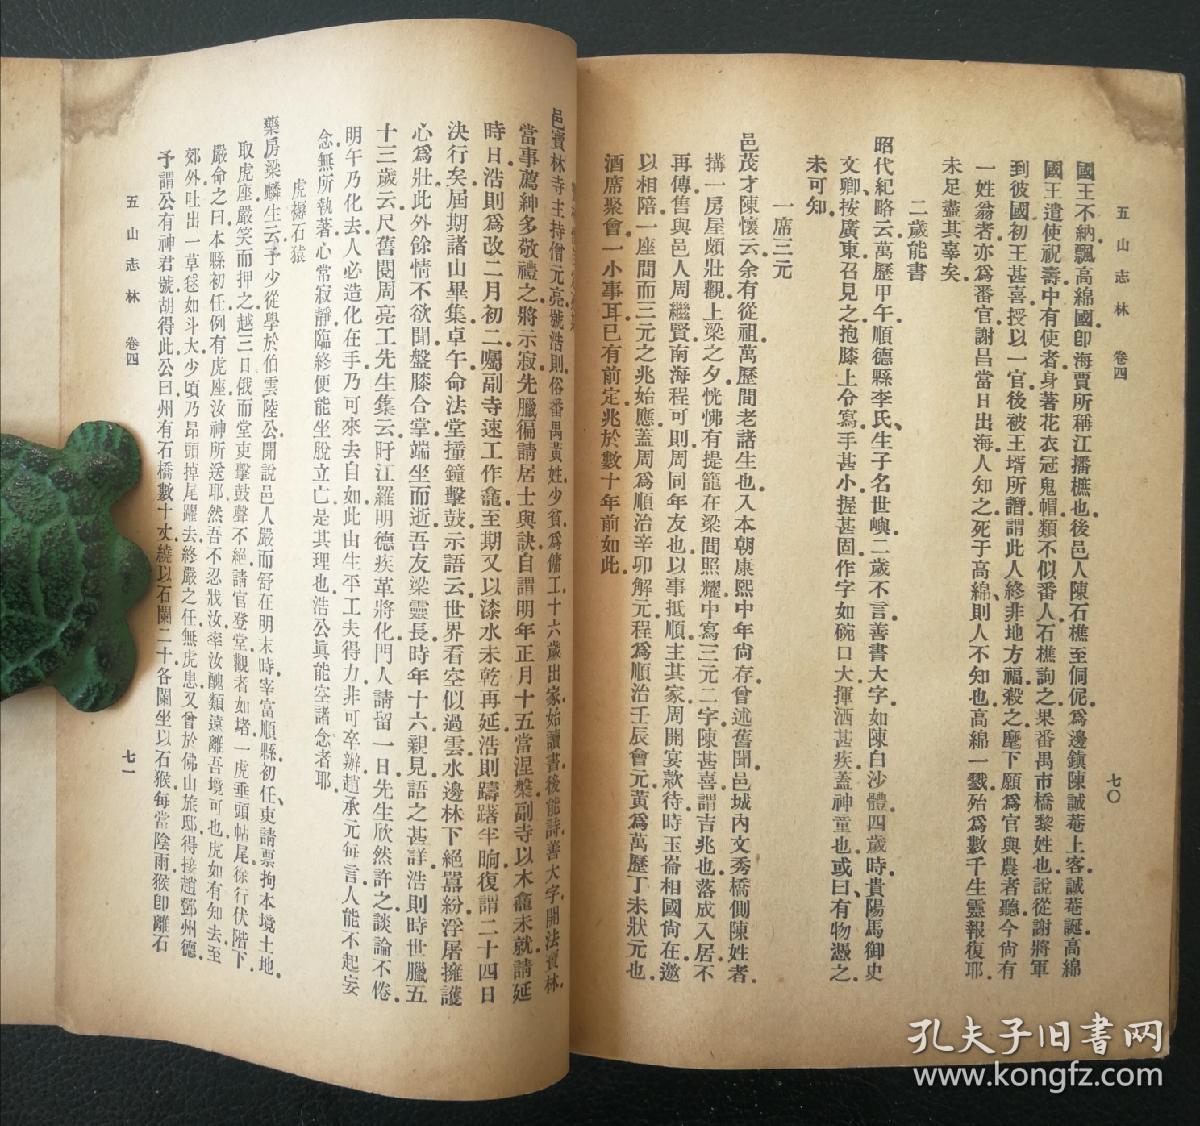 五山志林 卷四 七〇
國王不納飄高綿國卽海賈所稱江播樵也後邑人陳石樵至侗伲爲邊鎮陳誠菴上客誠菴誕高綿
國王遣使祝壽中有使者身著花衣冠鬼帽類不似番人石樵詢之果番禺市橋黎姓也說從謝將軍
到彼國初王甚喜授以一官後被王壻所譖謂此人終非地方福殺之麾下願爲官與農者聽今尙有
一姓翁者亦爲番官謝呂當日出海人知之死于高綿則人不知也高綿一戮殆爲數千生靈報復耶
未足盡其辜矣
二歲能書
昭代紀略云萬歷甲午順德縣李氏生子名世嶼二歲不言善書大字如陳白沙體四歲時貴陽馬御史
文卿按廣東召見之抱膝上令寫手甚小握甚固作字如碗口大揮洒甚疾蓋神童也或曰有物憑之
未可知
一席三元
邑茂才陳懷云余有從祖萬歷間老諸生也入本朝康熙中年尙存曾述舊聞邑城內文秀橋側陳姓者
搆一房屋頗壯觀上梁之夕恍怫有提籠在梁間照耀中寫三元二字陳甚喜謂吉兆也落成入居不
再傳售與邑人周繼賢南海程可則周同年友也以事抵順主其家周開宴款待時玉崙相國尙在邀
以相陪一座間而三元之兆始應蓋周爲順治辛卯解元程爲順治壬辰會元黃爲萬歷丁未狀元也
酒席聚會一小事耳已有前定兆於數十年前如此
邑寶林寺主持僧元亮號浩則俗番禺黃姓少貧爲傭工十六歲出家始讀書後能詩善大字開法寶林
當事薦紳多敬禮之將示寂先臘徧請居士與訣自謂明年正月十五當涅槃副寺以木龕未就請延
時日浩則爲改二月初二囑副寺速工作龕至期又以漆水未乾再延浩則躊躇半晌復謂二十四日
決行矣屆期諸山畢集卓午命法堂撞鐘擊鼓示語云世界看空似過雲水邊林下絕囂紛浮屠擁護
心爲壯此外餘情不欲聞盤膝合掌端坐而逝吾友梁靈長時年十六親見語之甚詳浩則時世臘五
十三歲云尺舊閱周亮工先生集云盱江羅明德疾革將化門人請留一日先生欣然許之談論不倦
明午乃化去人必造化在手乃可來去自如此由生平工夫得力非可卒辦趙承元每言人能不起妄
念無所執著心常寂靜臨終便能坐脫立亡是其理也浩公眞能空諸念者耶
虎櫪石猿
藥房梁麟生云予少從學於伯雲陸公聞說邑人嚴而舒在明末時宰富順縣初任吏請票拘本境土地
取虎座嚴笑而押之越三日俄而堂吏擊鼓聲不絕請官登堂觀者如堵一虎垂頭帖尾徐行伏階下
嚴命之曰本縣初任例有虎座汝神所送耶然吾不忍戕汝率汝醜類遠離吾境可也虎如有知去至
郊外吐出一草毬如斗大少頃乃昂頭掉尾躍去終嚴之任無虎患又曾於佛山旅邸得接趙鄧州德
予謂公有神君號胡得此公曰州有石橋數十丈繞以石闌二十各闌坐以石猴每當陰雨猴卽離石
五山志林 卷四 七一
孔夫子旧书网
www.kongfz.com